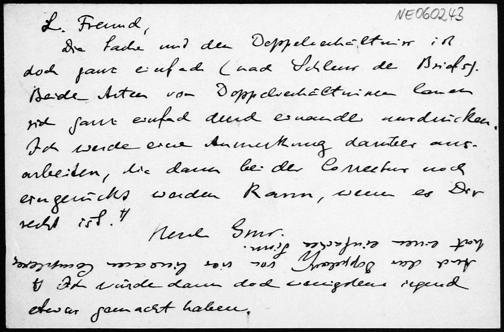 NE060243
L. Freund,
Die Sache mit dem Doppelverhältniss ist
doch ganz einfach (nach Schluss des Briefs).
Beide Arten von Doppelverhältnissen lassen
sich ganz einfach durch einander ausdrücken.
Ich werde eine Anmerkung darüber aus-
arbeiten, die dann bei der Correctur noch
eingerückt werden kann, wenn es Dir
recht ist.
Herzl. Gruss.
Auch das Doppelverh. von vier linearen
hat einen einfachen Sinn.
Ich würde dann doch wenigstens irgend
etwas gemacht haben.